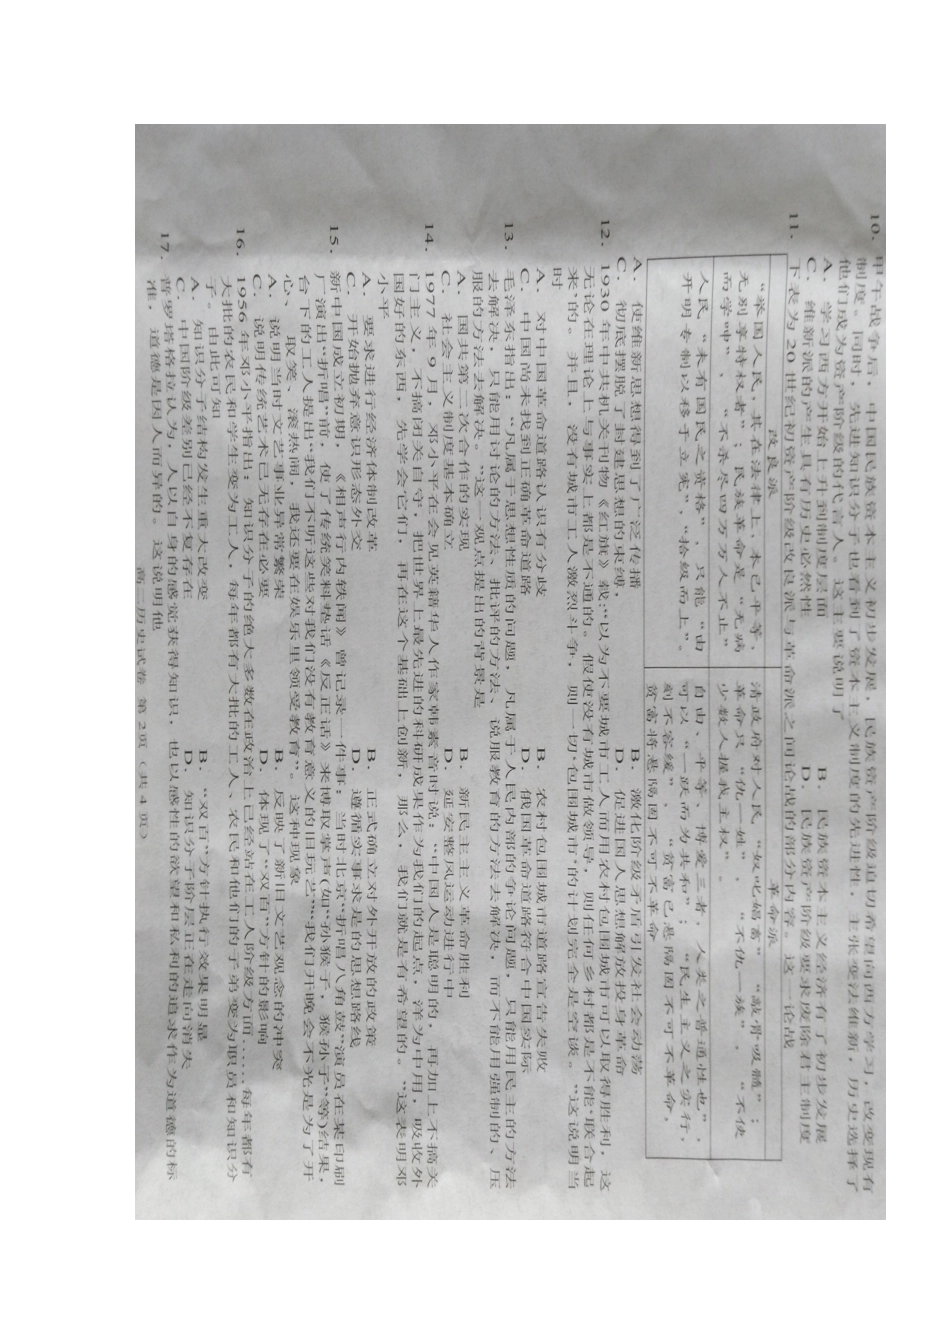 10. 甲午战争后，中国民族资本主义初步发展，民族资产阶级迫切希望向西方学习，改变现有
制度。同时，先进知识分子也看到了资本主义制度的先进性，主张变法维新，历史选择了
他们成为资产阶级的代言人。这主要说明了
A. 学习西方开始上升到制度层面 B. 民族资本主义经济有了初步发展
C. 维新派的产生具有历史必然性 D. 民族资产阶级要求废除君主制度
11. 下表为20世纪初资产阶级改良派与革命派之间论战的部分内容。这一论战
改良派 革命派
“举国人民，其在法律上，本已平等， 清政府对人民，“奴叱娼畜”“敲骨吸髓”；
无别享特权者”；民族革命是“无病 革命只“仇一姓”、“不仇一族”，“不使
而学呻”、“不杀尽四万万人不止” 少数人握我主权”。
人民，“未有国民之资格”，只能“由 自由、平等、博爱三者，人类之普通性也”，
开明专制以移于立宪”，“拾级而上”。 可以“一跃而为共和”；“民生主义之实行，
刻不容缓”，“贫富已悬隔固不可不革命，
贫富将悬隔固不可不革命
A. 使维新思想得到了广泛传播 B. 激化阶级矛盾引发社会动荡
C. 彻底摆脱了封建思想的束缚， D. 促进国人思想解放投身革命
12. 1930年中共机关刊物《红旗》载：“以为不要城市工人而用农村包围城市可以取得胜利，这
无论在理论上与事实上都是不通的。假使没有城市做领导，则任何乡村都是不能‘联合起
来’的。并且，没有城市工人激烈斗争，则一切‘包围城市’的计划完全是空谈。”这说明当
时
A. 对中国革命道路认识有分歧 B. 农村包围城市道路宣告失败
C. 中国尚未找到正确革命道路 D. 俄国革命道路符合中国实际
13. 毛泽东指出：“凡属于思想性质的问题，凡属于人民内部的争论问题，只能用民主的方法
去解决，只能用讨论的方法、批评的方法、说服教育的方法去解决，而不能用强制的、压
服的方法去解决。”这一观点提出的背景是
A. 国共第二次合作的实现 B. 新民主主义革命胜利
C. 社会主义制度基本确立 D. 延安整风运动进行中
14. 1977年9月，邓小平在会见英籍华人作家韩素音时说：“中国人是聪明的，再加上不搞关
门主义，不搞闭关自守，把世界上最先进的科研成果作为我们的起点，洋为中用，吸收外
国好的东西，先学会它们，再在这个基础上创新，那么，我们就是有希望的。”这表明邓
小平
A. 要求进行经济体制改革 B. 正式确立对外开放的政策
C. 开始抛弃意识形态外交 D. 遵循实事求是的思想路线
15. 新中国成立初期，《相声行内轶闻》曾记录一件事：当时北京“折唱八角鼓”演员在某印刷
厂演出“折唱”前，使了传统笑料垫话《反正话》来博取掌声(如“孙猴子，猴孙子”等)结果，
台下的工人提出“我们不听这些对我们没有教育意义的旧玩艺”“我们开晚会不光是为了开
心、取笑、滚热闹，我还要在娱乐里领受教育”。这种现象
A. 说明当时文艺事业异常繁荣 B. 反映了新旧文艺观念的冲突
C. 说明传统艺术已无存在必要 D. 体现了“双百”方针的影响
16. 1956年邓小平指出：知识分子的绝大多数在政治上已经站在工人阶级方面……每年都有
大批的农民和学生变为工人，每年都有大批的工人、农民和他们的子弟变为职员和知识分
子。由此可知
A. 知识分子结构发生重大改变 B. “双百”方针执行效果明显
C. 中国阶级差别已经不复存在 D. 知识分子阶层正在走向消失
17. 普罗塔格拉认为，人以自身的感觉获得知识，也以感性的欲望和私利的追求作为道德的标
准，道德是因人而异的。这说明他
高二历史试卷 第2页（共4页）